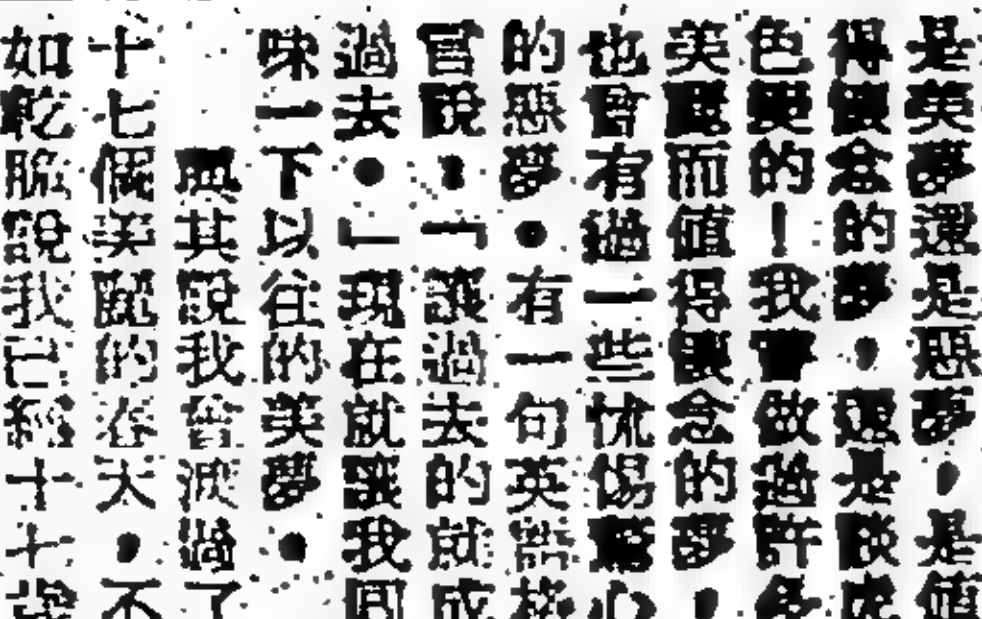 是美夢還是惡夢，是值
得懷念的夢，還是談虎
色變的！我曾做過許多
美麗而值得懷念的夢，
也曾有過一些怵惕驚心
的惡夢。有一句英語格
言說：「讓過去的就成
過去。」現在就讓我回
味一下以往的美夢。
與其說我曾渡過了
十七個美麗的春天，不
如乾脆說我已經十七歲